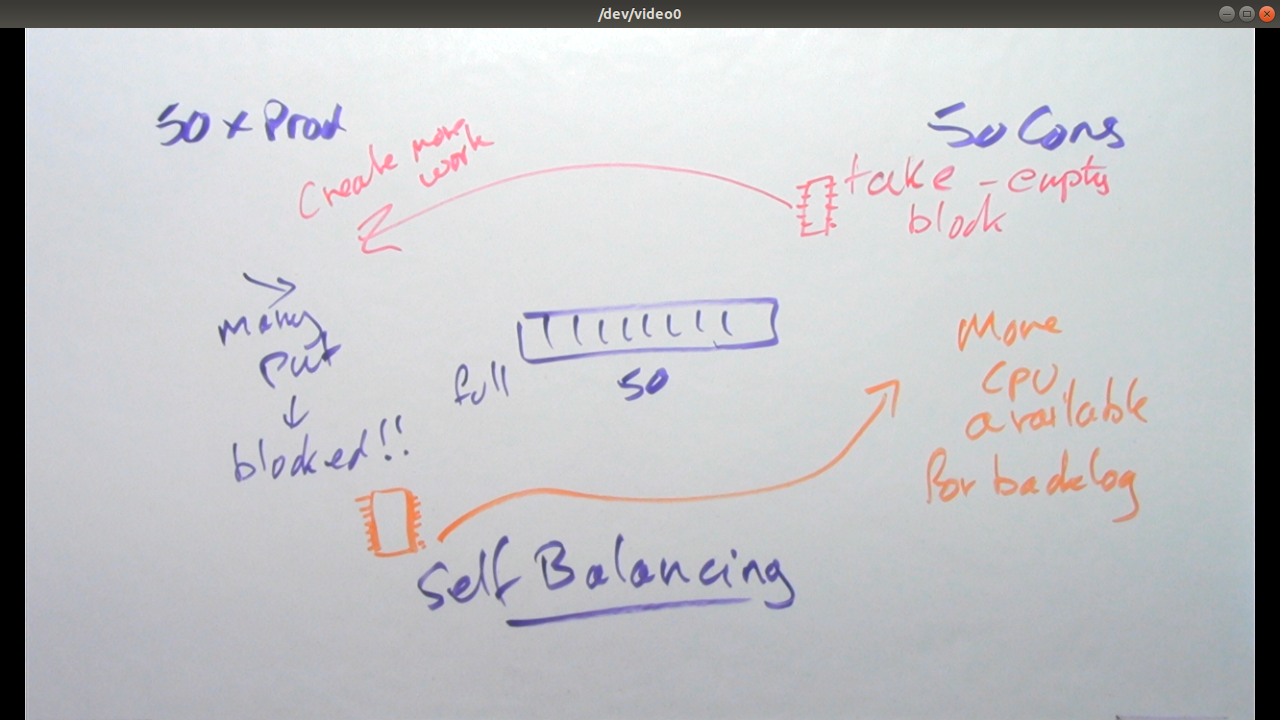 /dev/video0
50 x Prod
50 Cons
Create more
work
take - empty
block
many
put
blocked!!
full
50
More
CPU
available
For backlog
Self Balancing